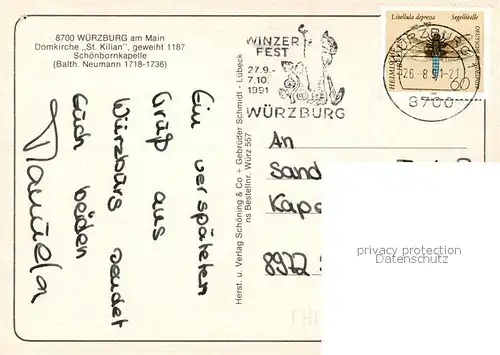 8700 WÜRZBURG am Main
Domkirche „St. Kilian", geweiht 1187
Schönbornkapelle
(Balth. Neumann 1718-1736)
Ein verspäteten
Gruß aus
Würzburg sendet
Euch beiden
Manuela
Herst. u. Verlag Schöning & Co + Gebrüder Schmidt - Lübeck
ns Bestellnr. Würz 557
WINZER
FEST
27.9.-
7.10.
1991
WÜRZBURG
Libellula depressa Segellibelle
60
WÜRZBURG 1
-26-8.91-21
8700
An
Sand
Kape
8972
privacy protection
Datenschutz